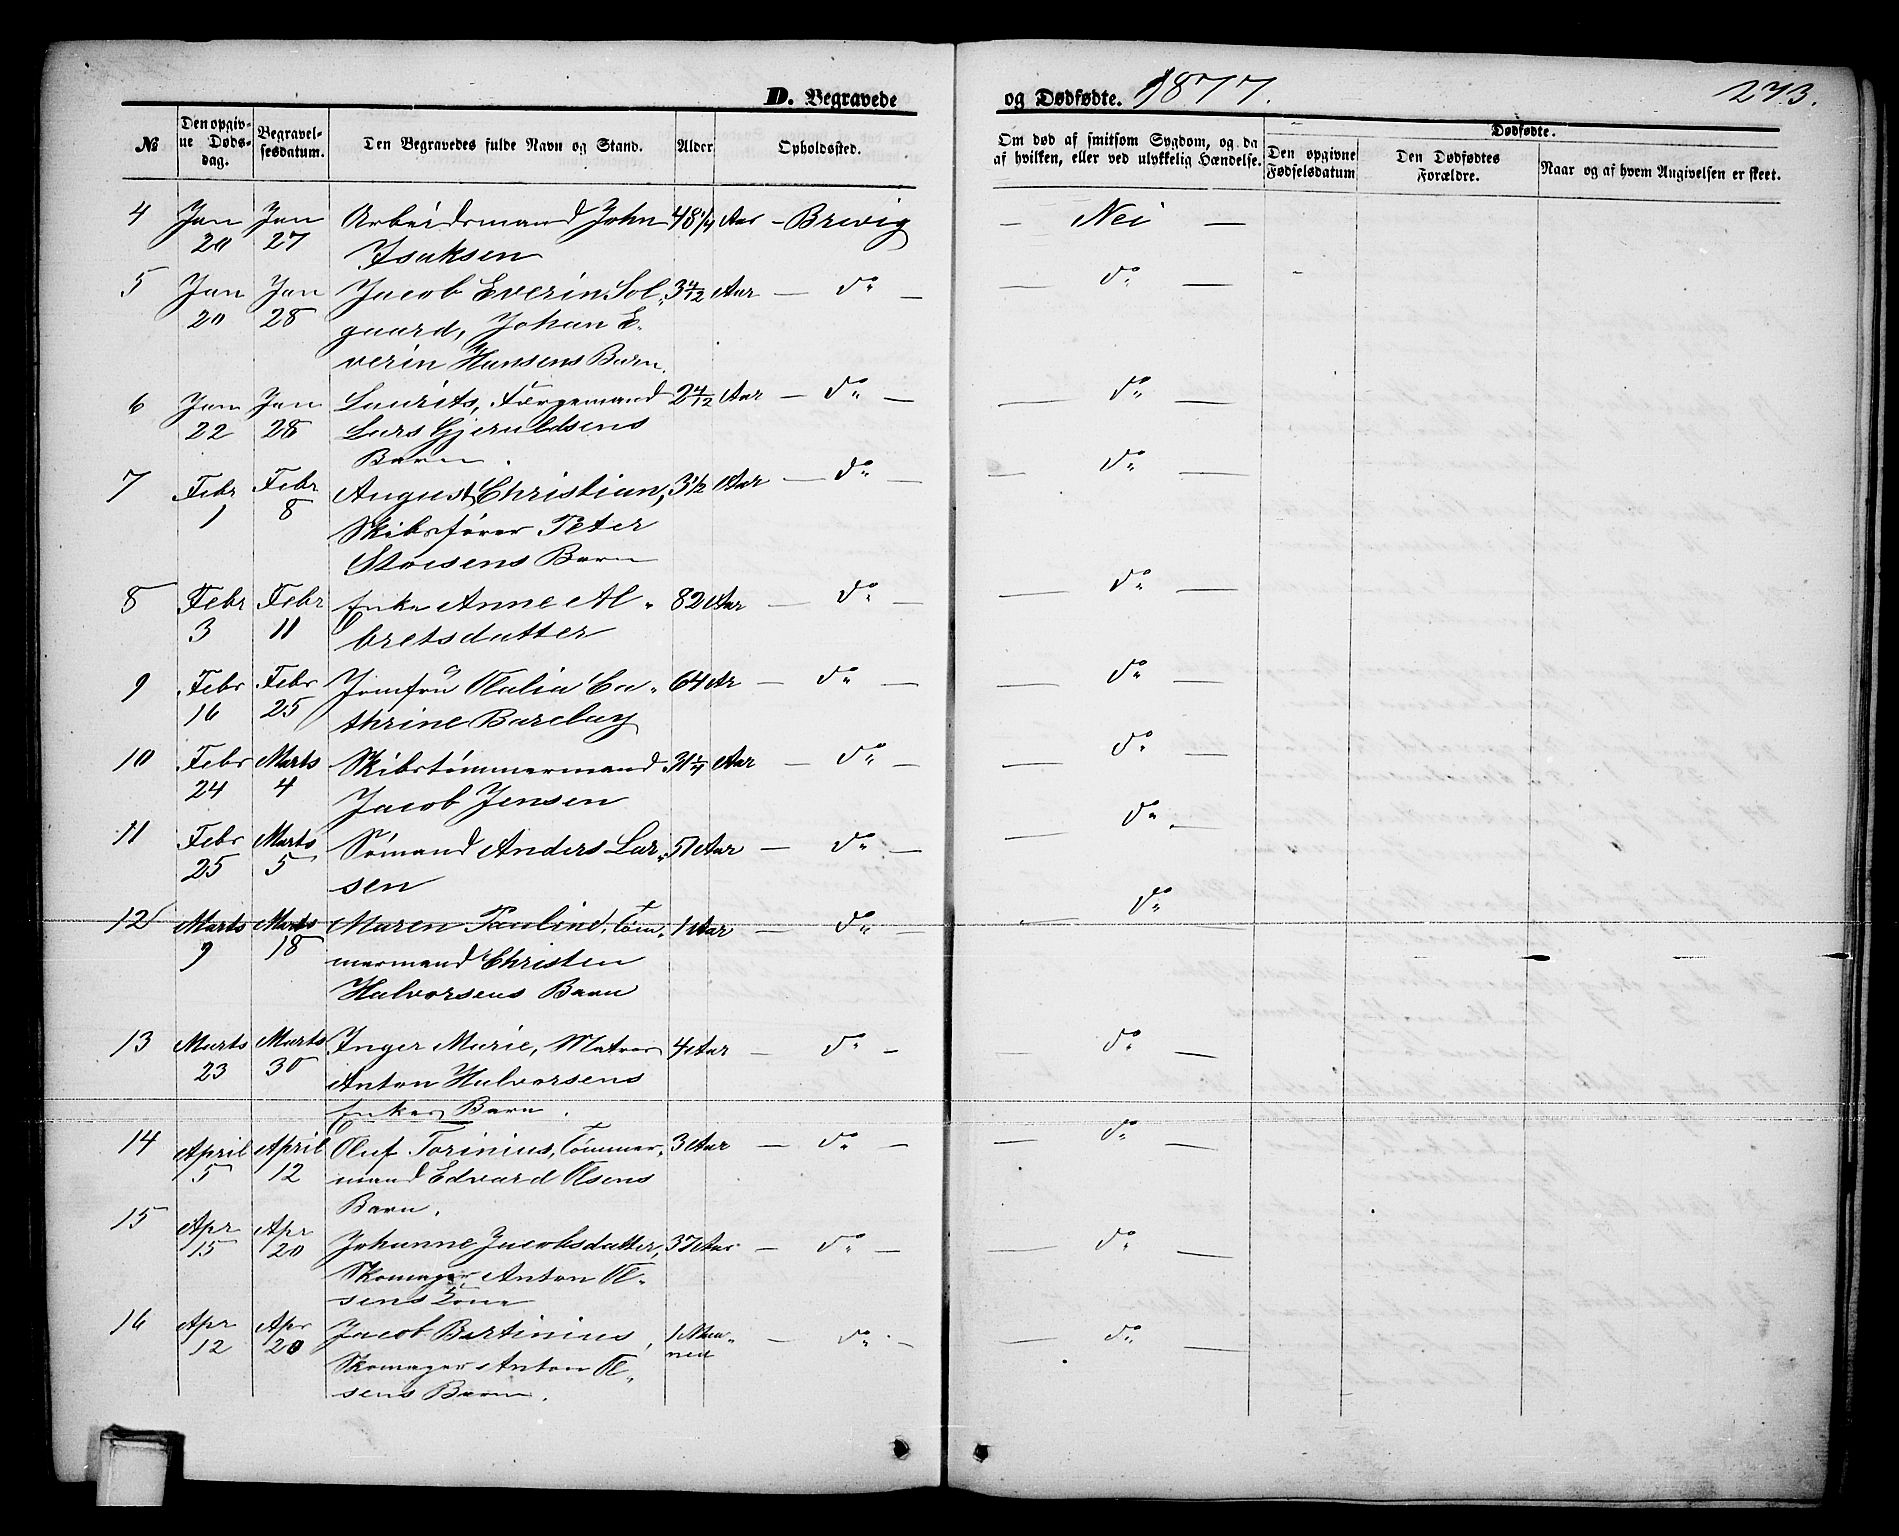 D. Begravede og Dødfødte. 1877. 273.
№ Den opgivne Dødsdag. Begravelsesdatum. Den Begravedes fulde Navn og Stand. Alder Opholdssted. Om død af smitsom Sygdom, og da af hvilken, eller ved ulykkelig Hændelse. Dødfødte. Den opgivne Fødselsdatum Den Dødfødtes Forældre. Naar og af hvem Angivelsen er skeet.
4 Jan Jan Arbeidsmand John 48 1/4 Aar – Brevig – Nei –
20 27 Isaksen
5 Jan Jan Jacob Everin Sol- 3 4/12 Aar – do – – do –
20 28 gaard, Johan E-
verin Hansens Barn.
6 Jan Jan Laurits, Færgemand 2 4/12 Aar – do – – do –
22 28 Lars Gjeruldsens
Barn.
7 Febr Febr August Christian, 3 1/2 Aar – do – – do –
1 8 Skibsfører Peter
Stoesens Barn
8 Febr Febr Enke Anne Al- 82 Aar – do – – do –
3 11 bretsdatter
9 Febr Febr Jomfru Olalia Ca- 64 Ar – do – – do –
16 25 thrine Barclay
10 Febr Marts Skibstømmermand 31 1/4 Aar – do – – do –
24 4 Jacob Jensen
11 Febr Marts Sømand Anders Lar- 51 Aar – do – – do –
25 5 sen
12 Marts Marts Maren Pauline, Tøm- 1 Aar – do – – do –
9 18 mermand Christen
Halvorsens Barn
13 Marts Marts Inger Marie, Matros 4 Aar – do – – do –
23 30 Anton Halvorsens
Enkes Barn.
14 April April Oluf Torinius, Tømmer- 3 Aar – do – – do –
5 12 mand Edvard Olsens
Barn.
15 Apr Apr Johanne Jacobsdatter, 37 Aar – do – – do –
15 20 Skomager Anton Ol-
sens Kone
16 Apr Apr Jacob Bertinius, 1 Maa- – do – – do –
12 20 Skomager Anton Ol- ned
sens Barn.